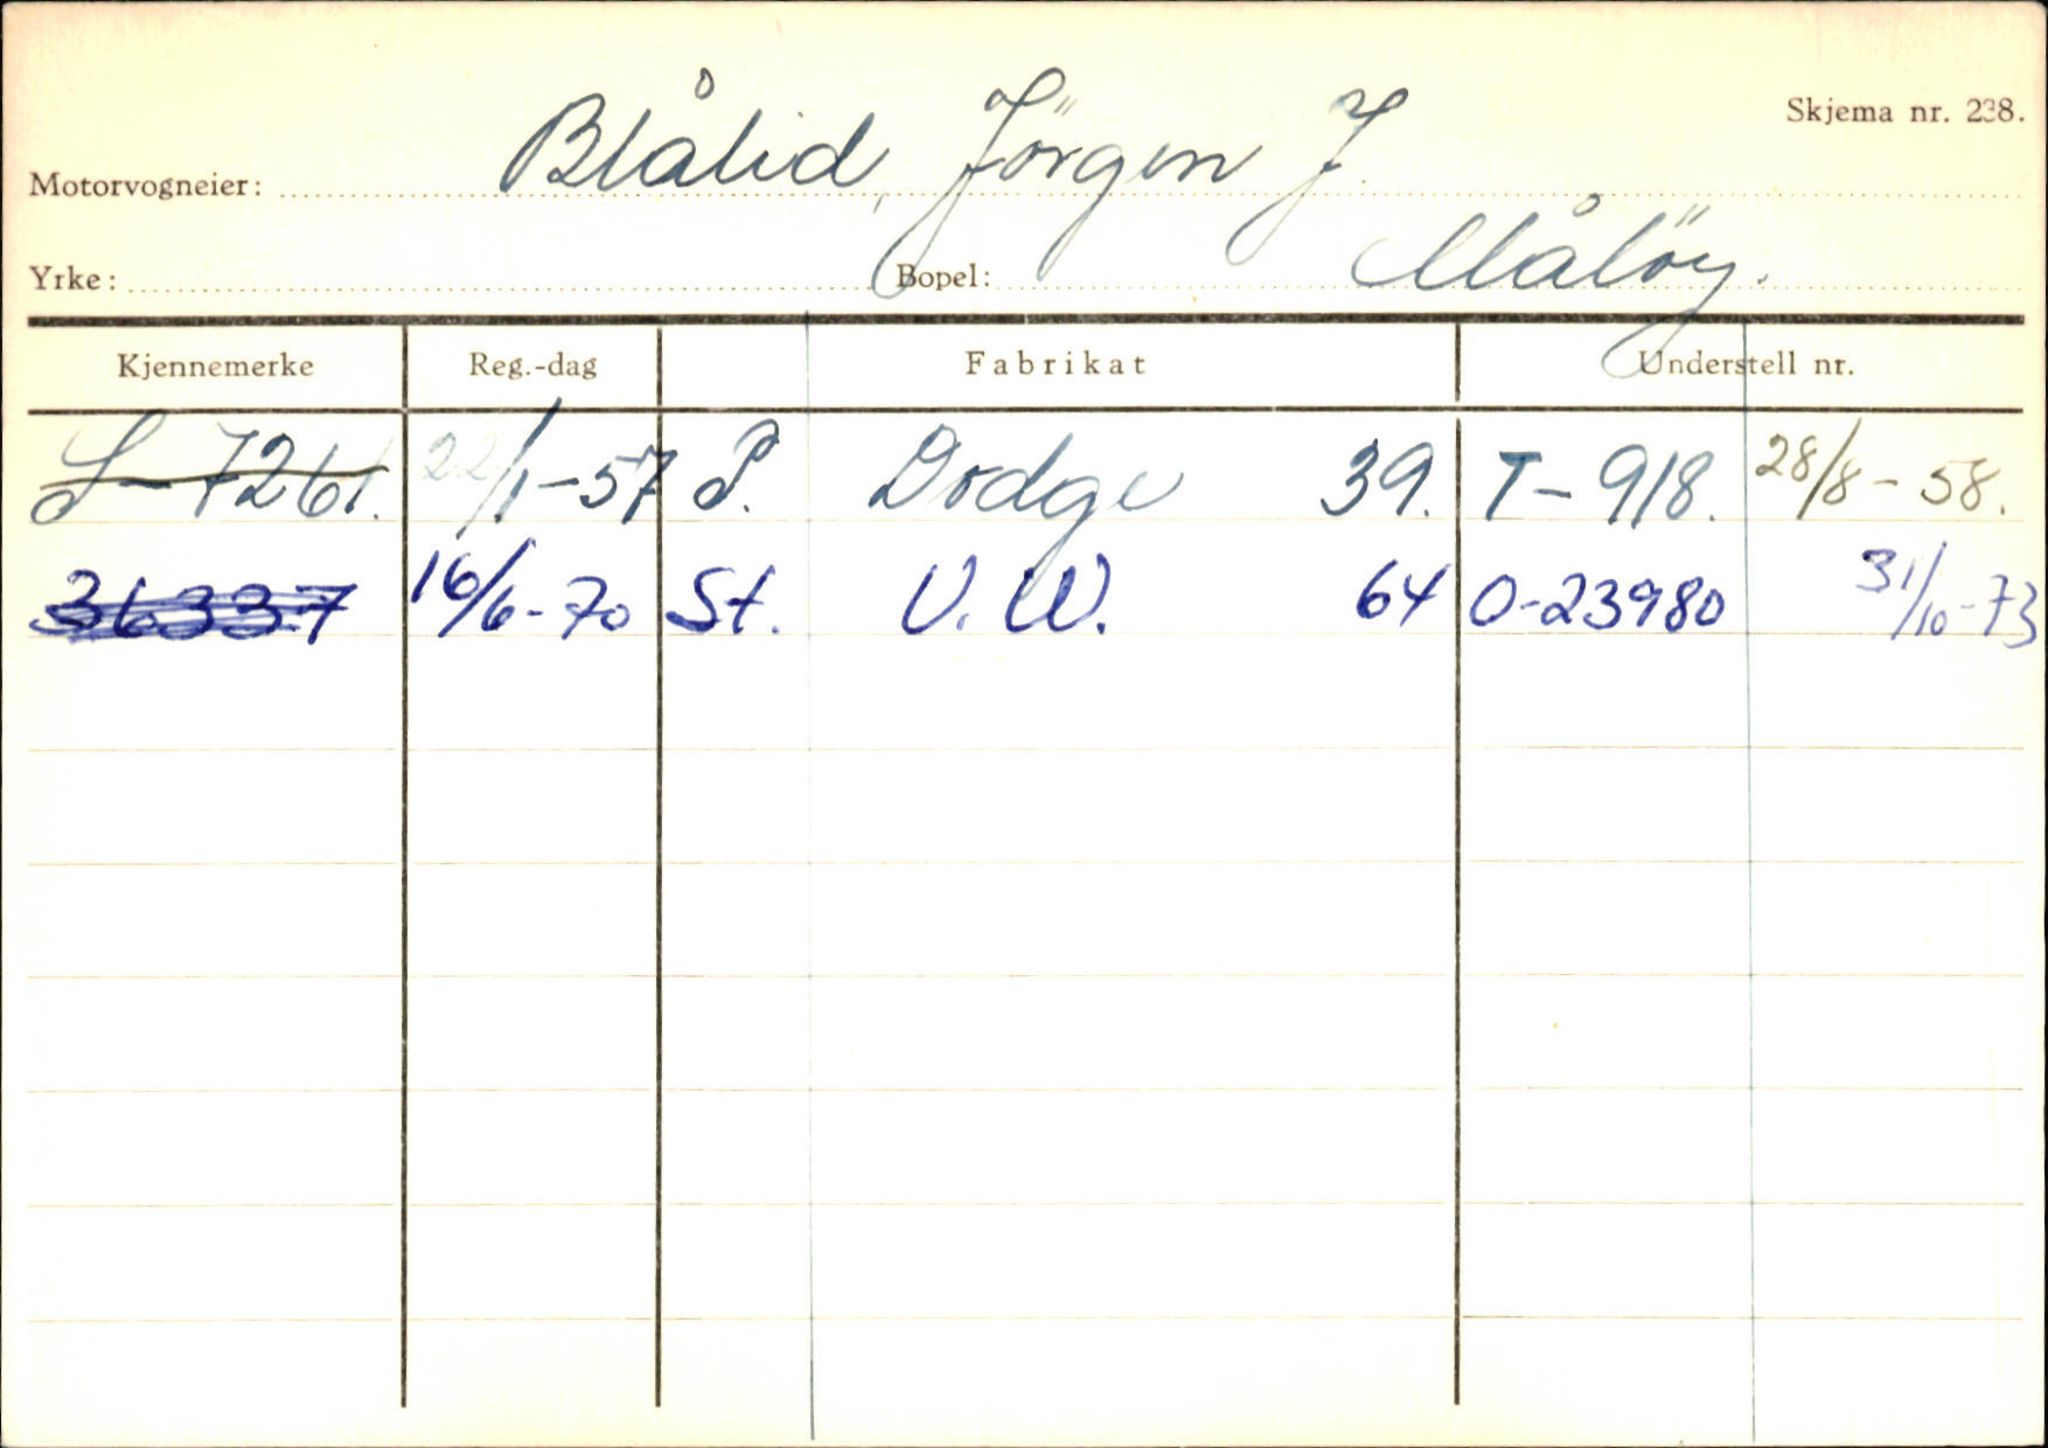 Skjema nr. 238.
Motorvogneier: Blålid, Jörgen J.
Yrke: Bopel: Målöy.
Kjennemerke Reg.-dag Fabrikat Understell nr.
S-7261. 22/1-57 P. Dodge 39. T-918. 28/8-58.
36337 16/6-70 St. V.W. 64 0-23980 31/10-73